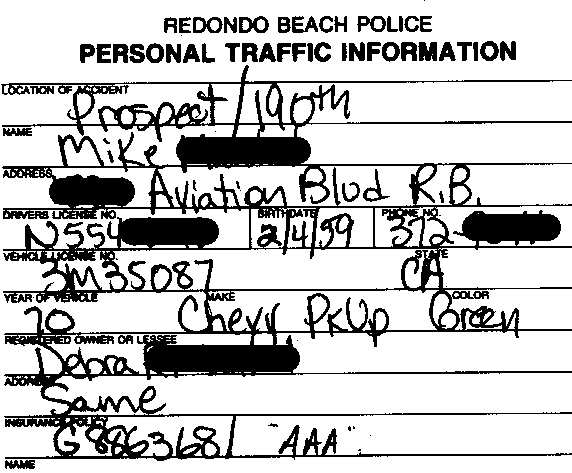 REDONDO BEACH POLICE
PERSONAL TRAFFIC INFORMATION
LOCATION OF ACCIDENT
Prospect / 190th
NAME
Mike
ADDRESS
Aviation Blvd R.B.
DRIVERS LICENSE NO. BIRTHDATE PHONE NO.
N554 2/4/59 372-
VEHICLE LICENSE NO. STATE
3M35087 CA
YEAR OF VEHICLE MAKE COLOR
70 Chevy PkUp Green
REGISTERED OWNER OR LESSEE
Debra
ADDRESS
Same
INSURANCE POLICY
G8863681 "AAA"
NAME